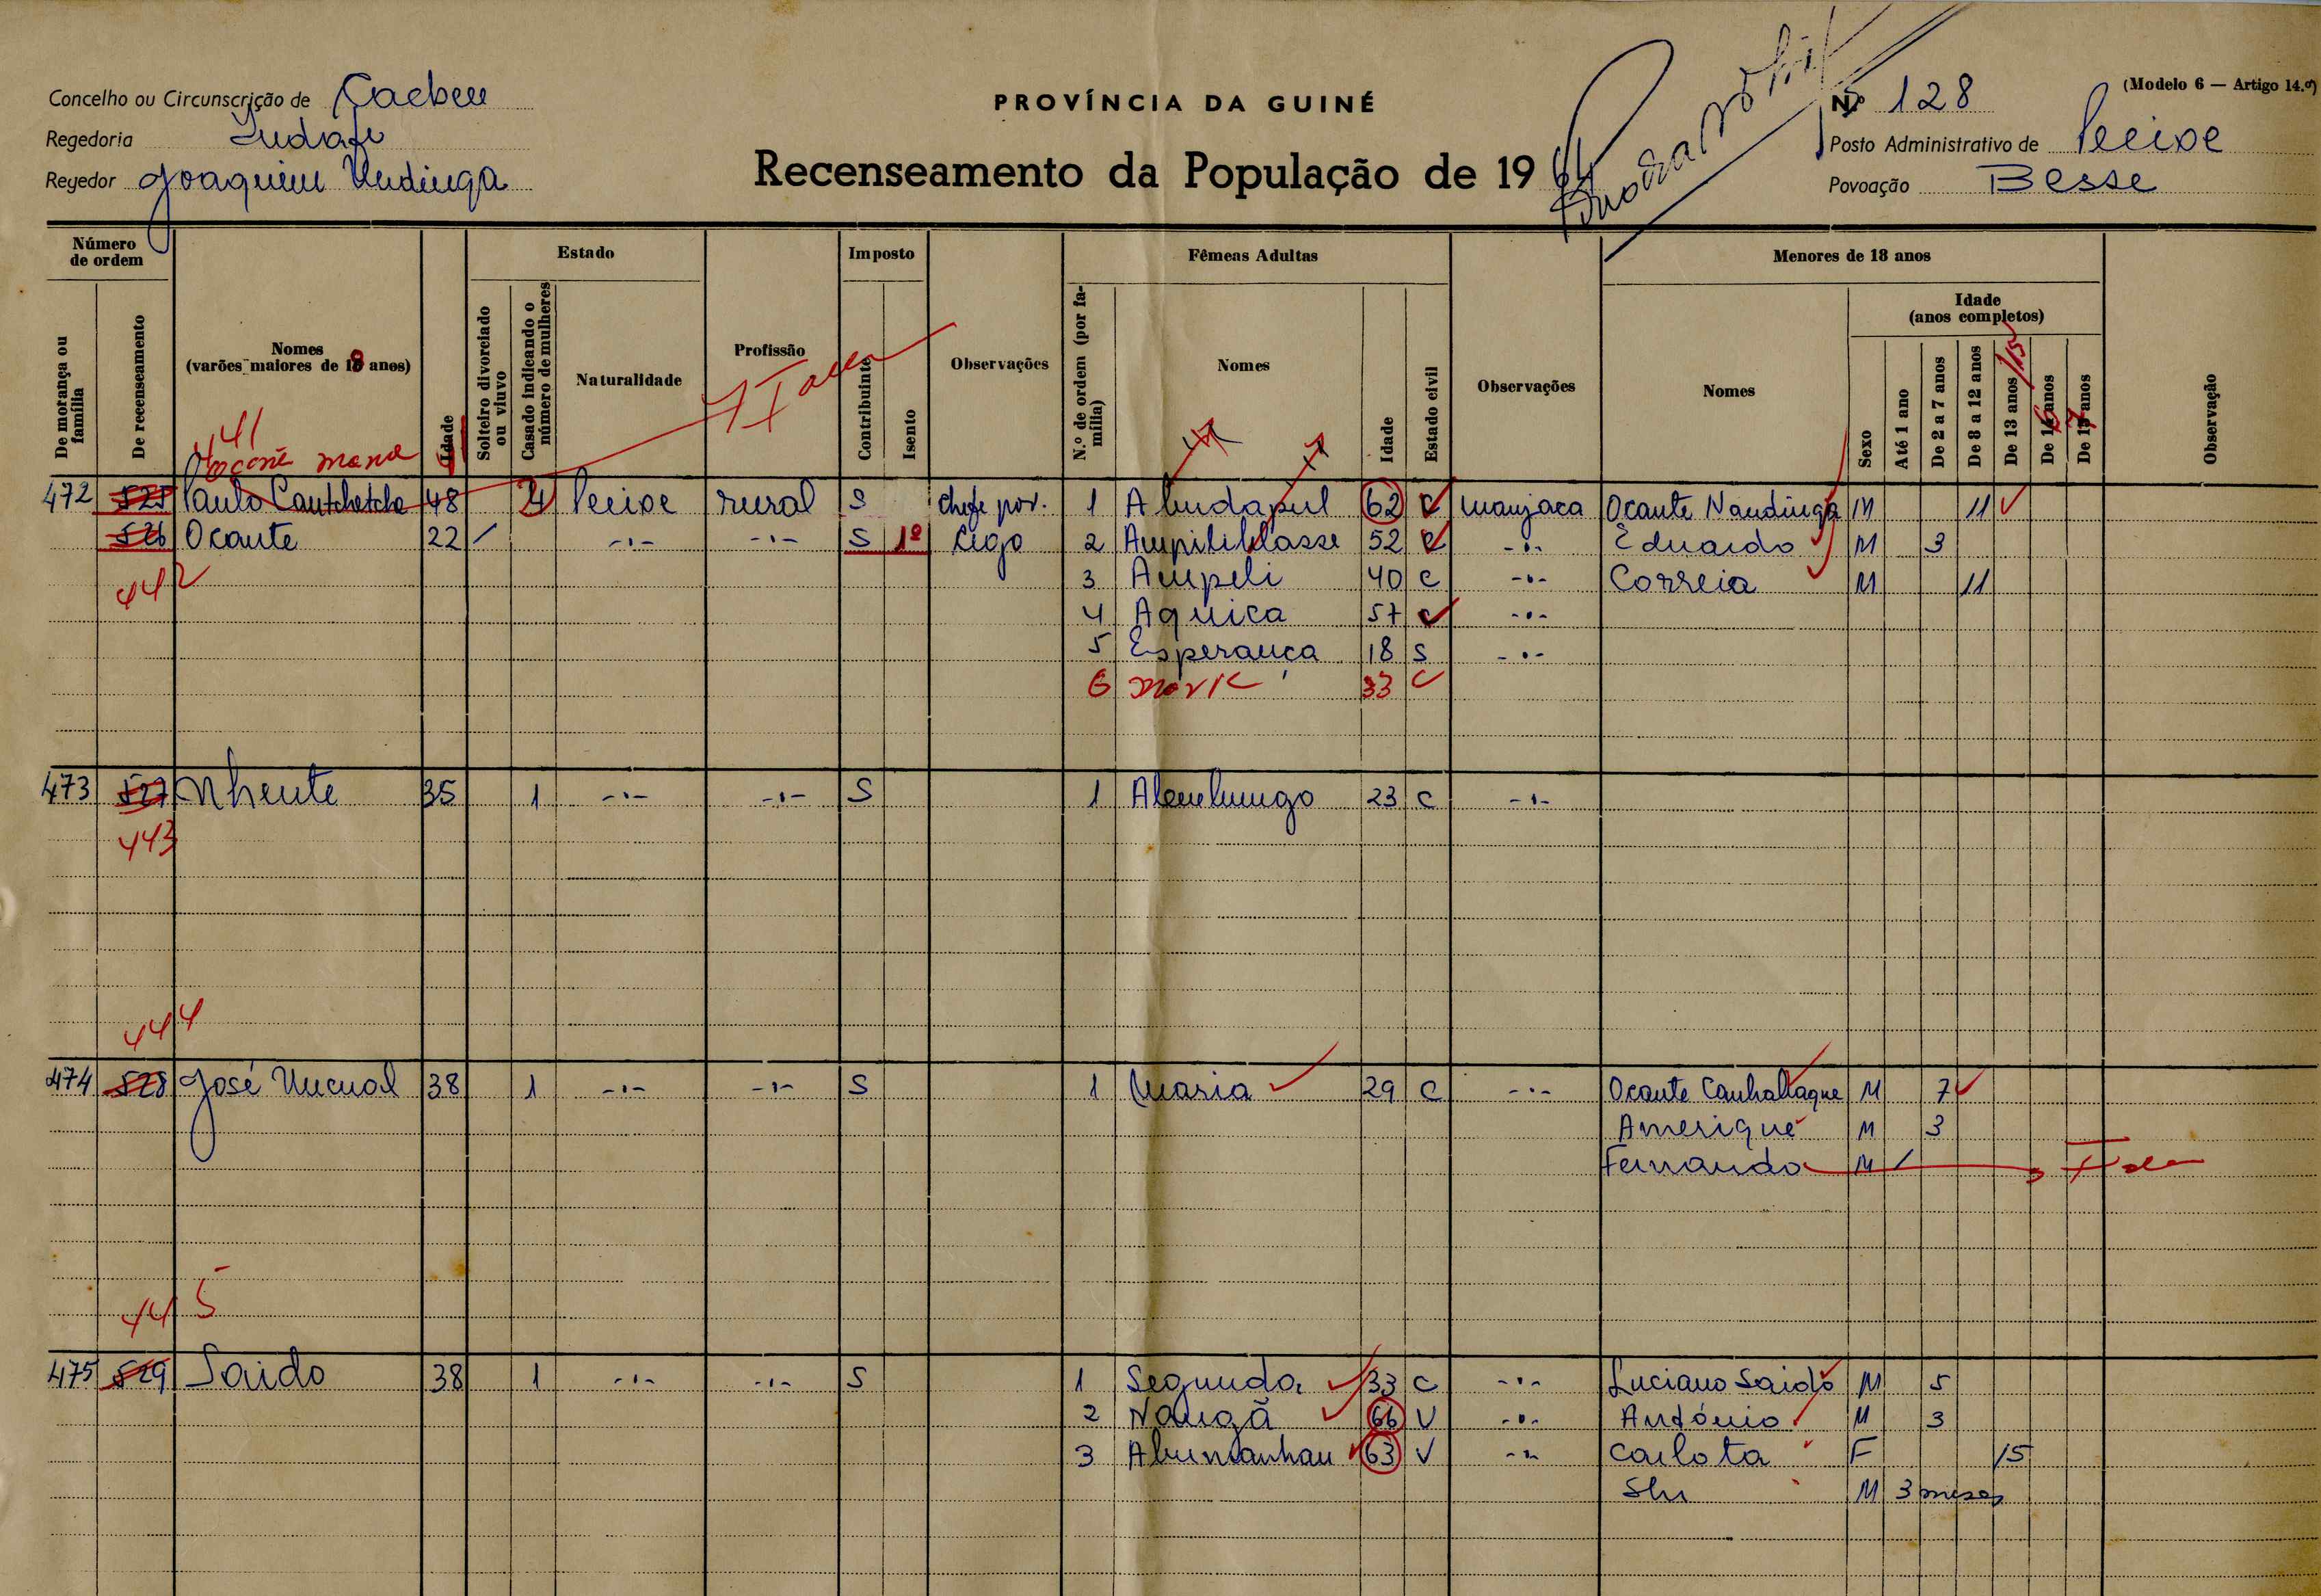 Concelho ou Circunscrição de Cacheu
PROVÍNCIA DA GUINÉ
Nº 128
(Modelo 6 — Artigo 14.º)
Regedoria
Posto Administrativo de Pecixe
Regedor Joaquim Undinga
Recenseamento da População de 1964
Povoação Besse
Número de ordem
Estado
Imposto
Fêmeas Adultas
Menores de 18 anos
De morança ou família
De recenseamento
Nomes (varões maiores de 18 anos)
Idade
Solteiro divorciado ou viuvo
Casado indicando o número de mulheres
Naturalidade
Profissão
Contribuinte
Isento
Observações
N.º de ordem (por família)
Nomes
Idade
Estado civil
Observações
Nomes
Sexo
Idade (anos completos)
Até 1 ano
De 2 a 7 anos
De 8 a 12 anos
De 13 anos /15
De 16 anos
De 17 anos
Observação
441
472 525 Paulo Cautchetche 48 4 Pecixe rural S Chefe pov. 1 Abudapul 62 C Manjaca Ocante Nandinga M 11
526 Ocante 22 / -.- -.- S 1º Cego 2 52 C -.- Eduardo M 3
442 3 Ampeli 40 C -.- Correia M 11
4 Aquica 57 C -.-
5 Esperança 18 S -.-
6 33 C
473 527 Nhente 35 1 -.- -.- S 1 23 C -.-
443
444
474 528 José Uncual 38 1 -.- -.- S 1 Maria 29 C -.- Ocante M 7
Amerique M 3
Fernando M /
445
475 529 Saido 38 1 -.- -.- S 1 Segunda 33 C -.- Luciano Saido M 5
2 Nangã 66 V -.- António M 3
3 Abumanhau 63 V -.- Carlota F 15
M 3 meses